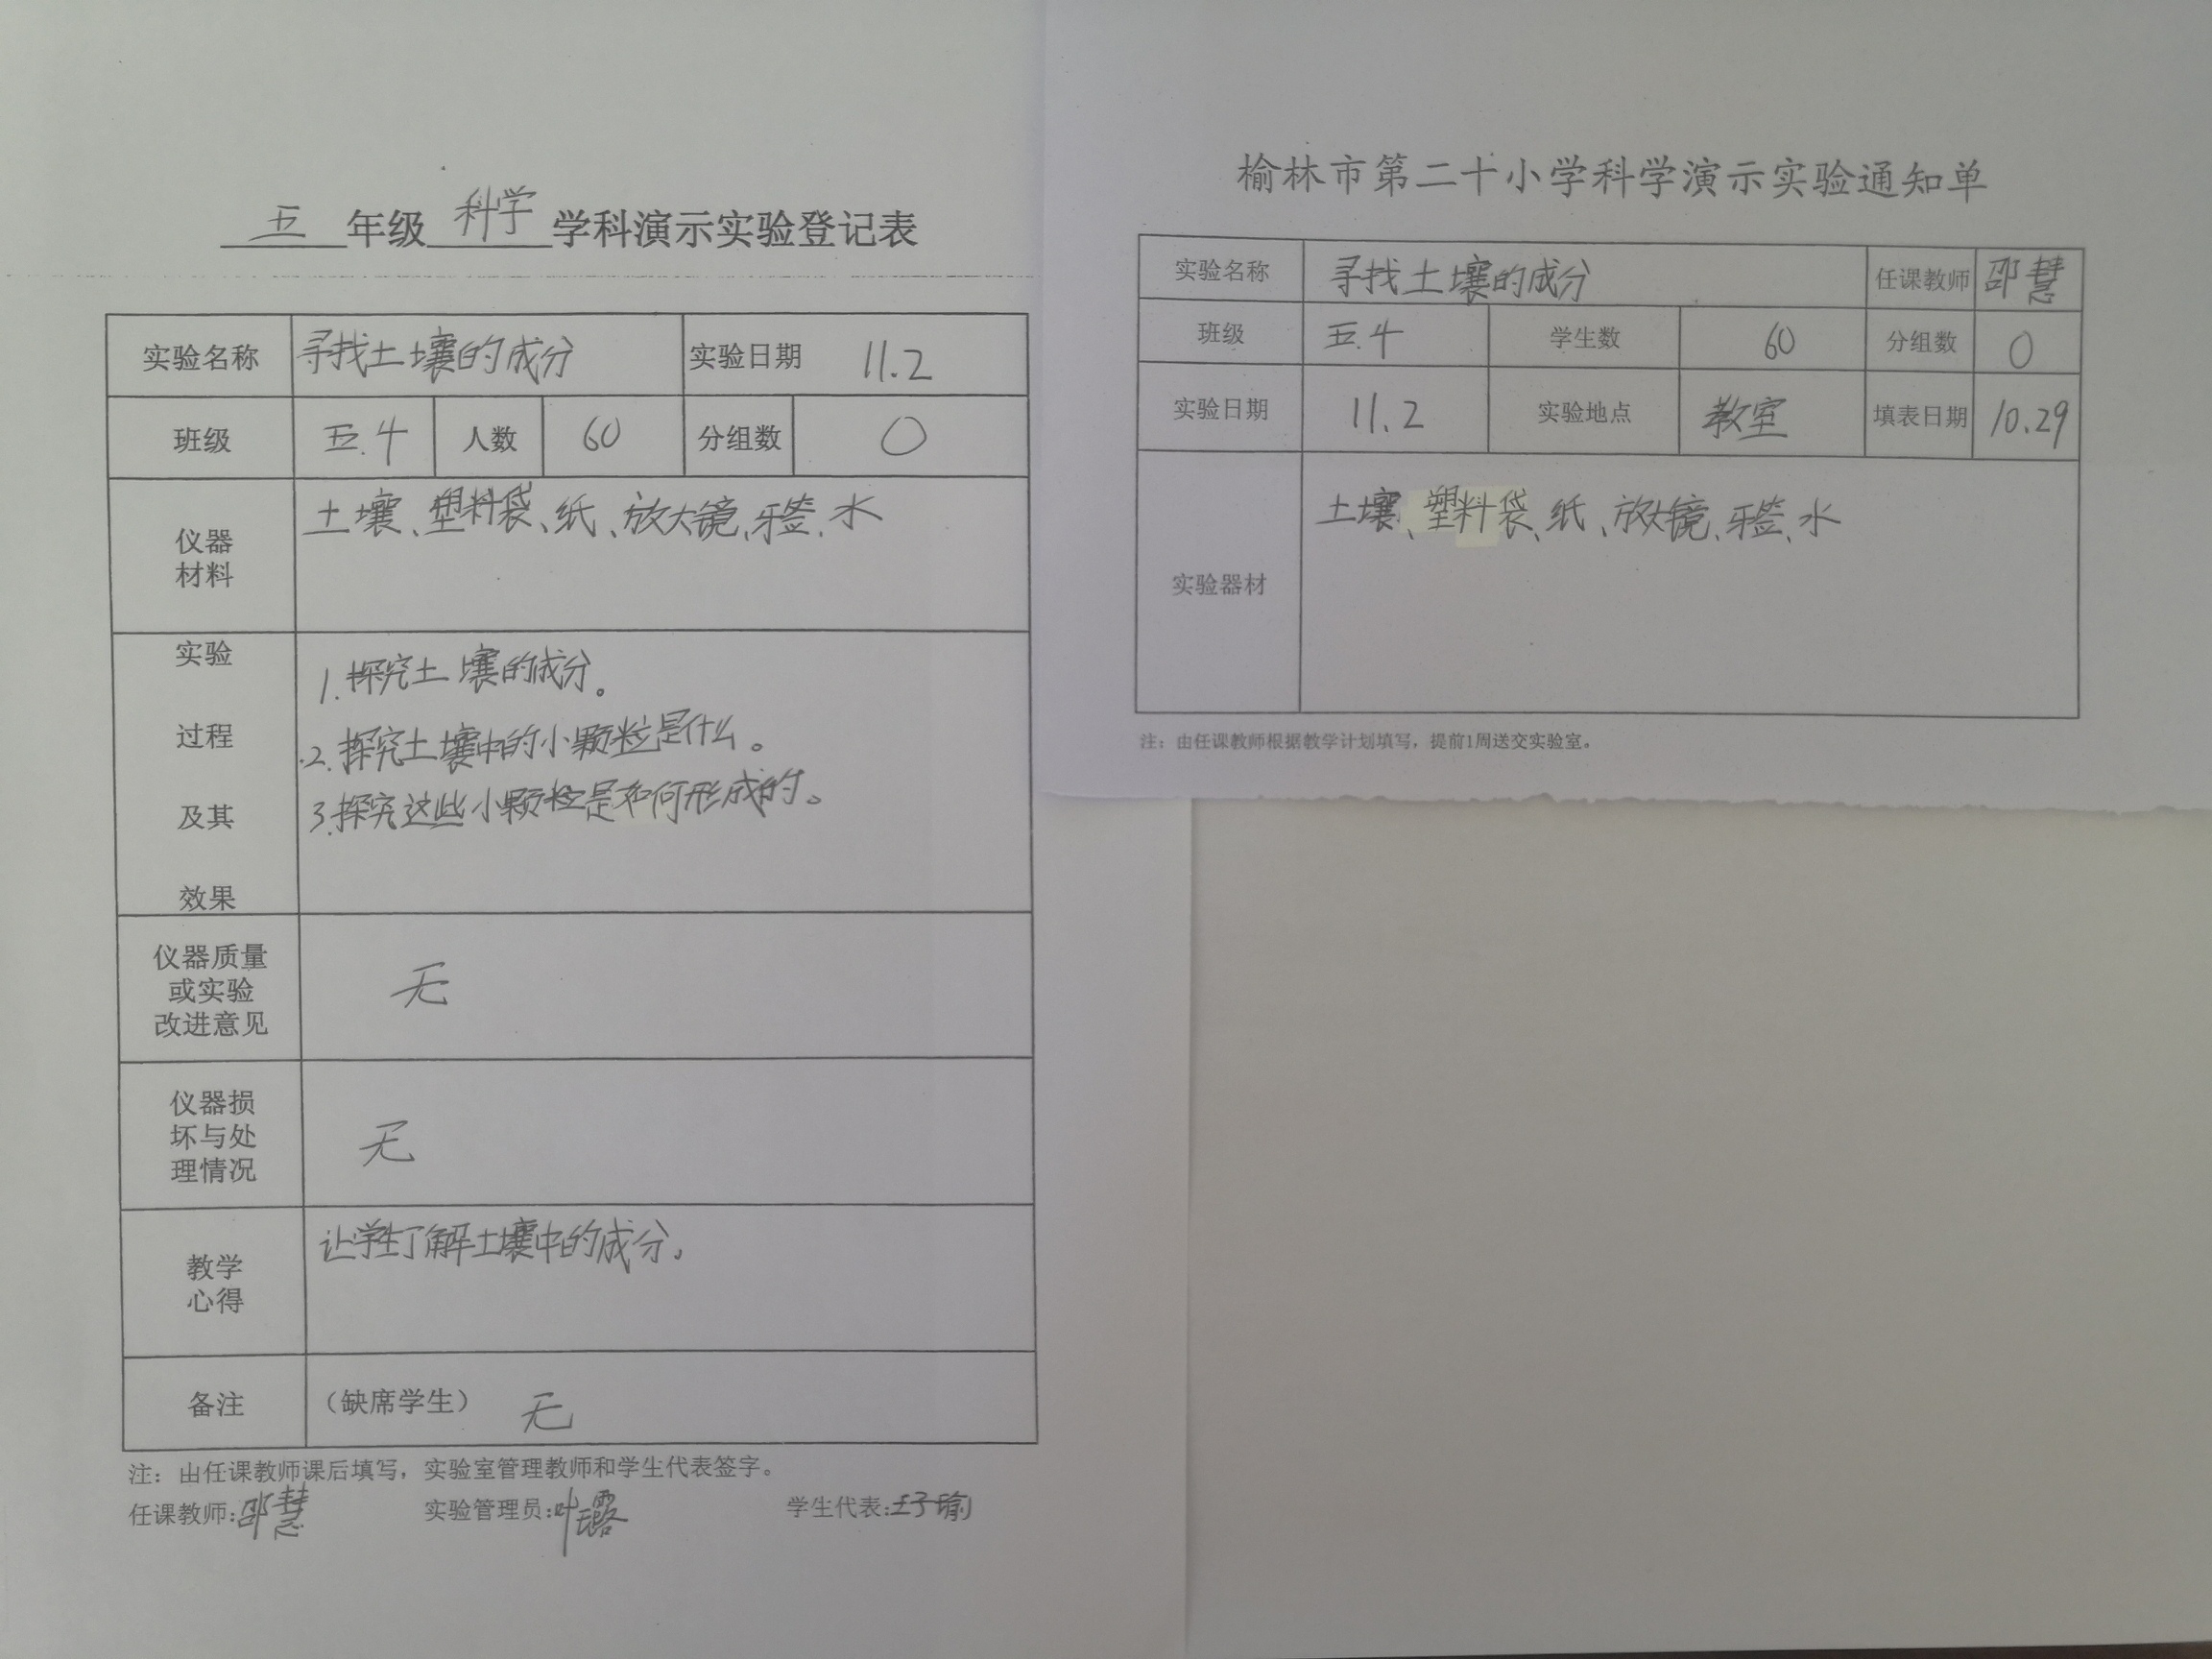 五 年级 科学 学科演示实验登记表
实验名称 寻找土壤的成分 实验日期 11.2
班级 五.4 人数 60 分组数 0
仪器
材料
土壤、塑料袋、纸、放大镜、牙签、水
实验
过程
及其
效果
1.探究土壤的成分。
2.探究土壤中的小颗粒是什么。
3.探究这些小颗粒是如何形成的。
仪器质量
或实验
改进意见
无
仪器损
坏与处
理情况
无
教学
心得
让学生了解土壤中的成分。
备注 （缺席学生） 无
注：由任课教师课后填写，实验室管理教师和学生代表签字。
任课教师:邵慧 实验管理员:叶露 学生代表:王子瑜
榆林市第二十小学科学演示实验通知单
实验名称 寻找土壤的成分 任课教师 邵慧
班级 五.4 学生数 60 分组数 0
实验日期 11.2 实验地点 教室 填表日期 10.29
实验器材
土壤、塑料袋、纸、放大镜、牙签、水
注：由任课教师根据教学计划填写，提前1周送交实验室。